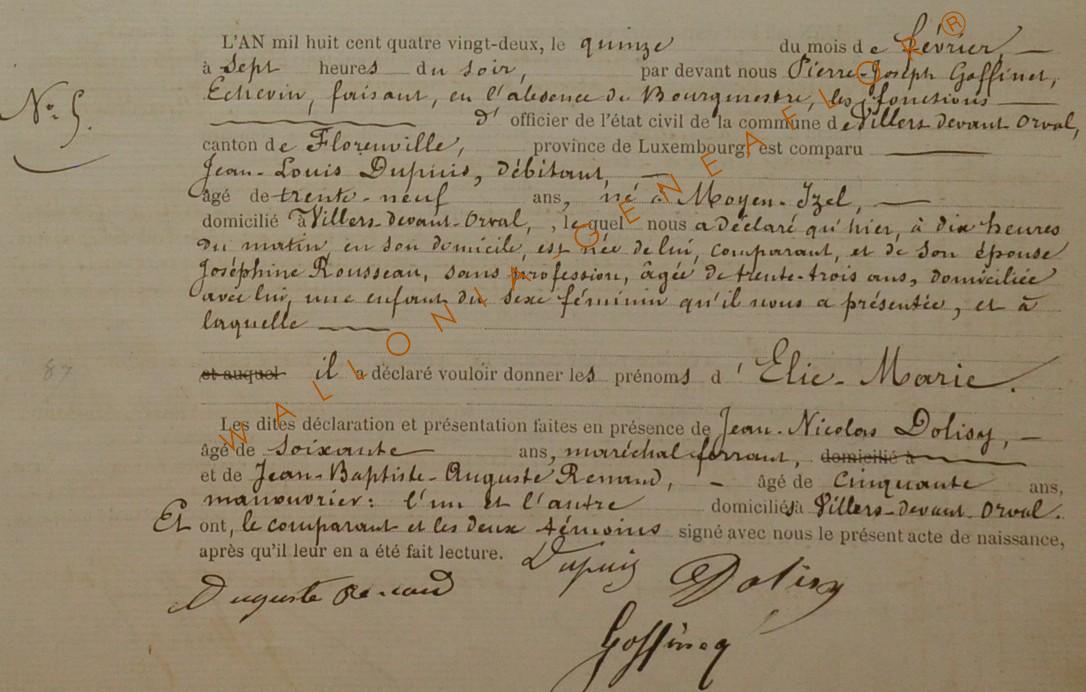 L'AN mil huit cent quatre vingt-deux, le quinze du mois de février,
à sept heures du soir, par devant nous Pierre-Joseph Goffinet,
Echevin, faisant, en l'absence du Bourgmestre, les fonctions
N° 5.
d'officier de l'état civil de la commune de Villers devant Orval,
canton de Florenville, province de Luxembourg, est comparu
Jean-Louis Dupuis, débitant,
âgé de trente-neuf ans, né à Moyen-Izel,
domicilié à Villers-devant-Orval, , lequel nous a déclaré qu'hier, à dix heures
du matin, en son domicile, est née de lui, comparant, et de son épouse
Joséphine Rousseau, sans profession, âgée de trente-trois ans, domiciliée
avec lui, une enfant du sexe féminin qu'il nous a présentée, et à
laquelle
87
et auquel il a déclaré vouloir donner les prénoms d'Elie-Marie.
Les dites déclaration et présentation faites en présence de Jean-Nicolas Dolisy,
âgé de soixante ans, maréchal ferrant, domicilié à
et de Jean-Baptiste-Auguste Renaud, âgé de cinquante ans,
manouvrier: l'un et l'autre domiciliés à Villers-devant-Orval.
Et ont, le comparant et les deux témoins signé avec nous le présent acte de naissance,
après qu'il leur en a été fait lecture. Dupuis Dolisy
Auguste Renaud
Goffinet
WALLONIA GENEAFLOR ®